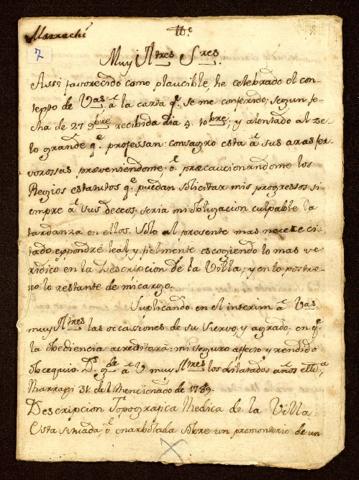 Marrachi
7
Muy Iltres Sres
Assi favorecido como plaucible, he celebrado el con
tepto de Vas. la carta qe. se me conferido, segun fe
cha de 27 9bre recibida dia 4 10bre, y alentado al ze
lo grande qe. professan: consagro esta a sus aras fer
vorossas previniendome o precaucionandome los
Regios estatutos qe. puedan solicitar mis progressos si
empre a Vus deceos, seria mi obligacion culpable la
tardanza en ellos. Solo al presente mas necessi
tado respondre leal, y fielmente escogiendo lo mas ve
ridico en la Descripcion de la Villa, y en lo postre
ro lo restante de mi cargo.
Suplicando en el interim a Vas
muy Iltres las occasiones de su Siervo, y agrado, en qe.
la obediencia acreditara: mi seguro afecto y rendido
Obsequio. Ds. gde. a V muy Iltres los dilatados años
Marrag 31 del Mencionado de 1789.
Descripcion Topografica Medica de la Villa
Esta situada, o enarbolada sobre un promonterio de un